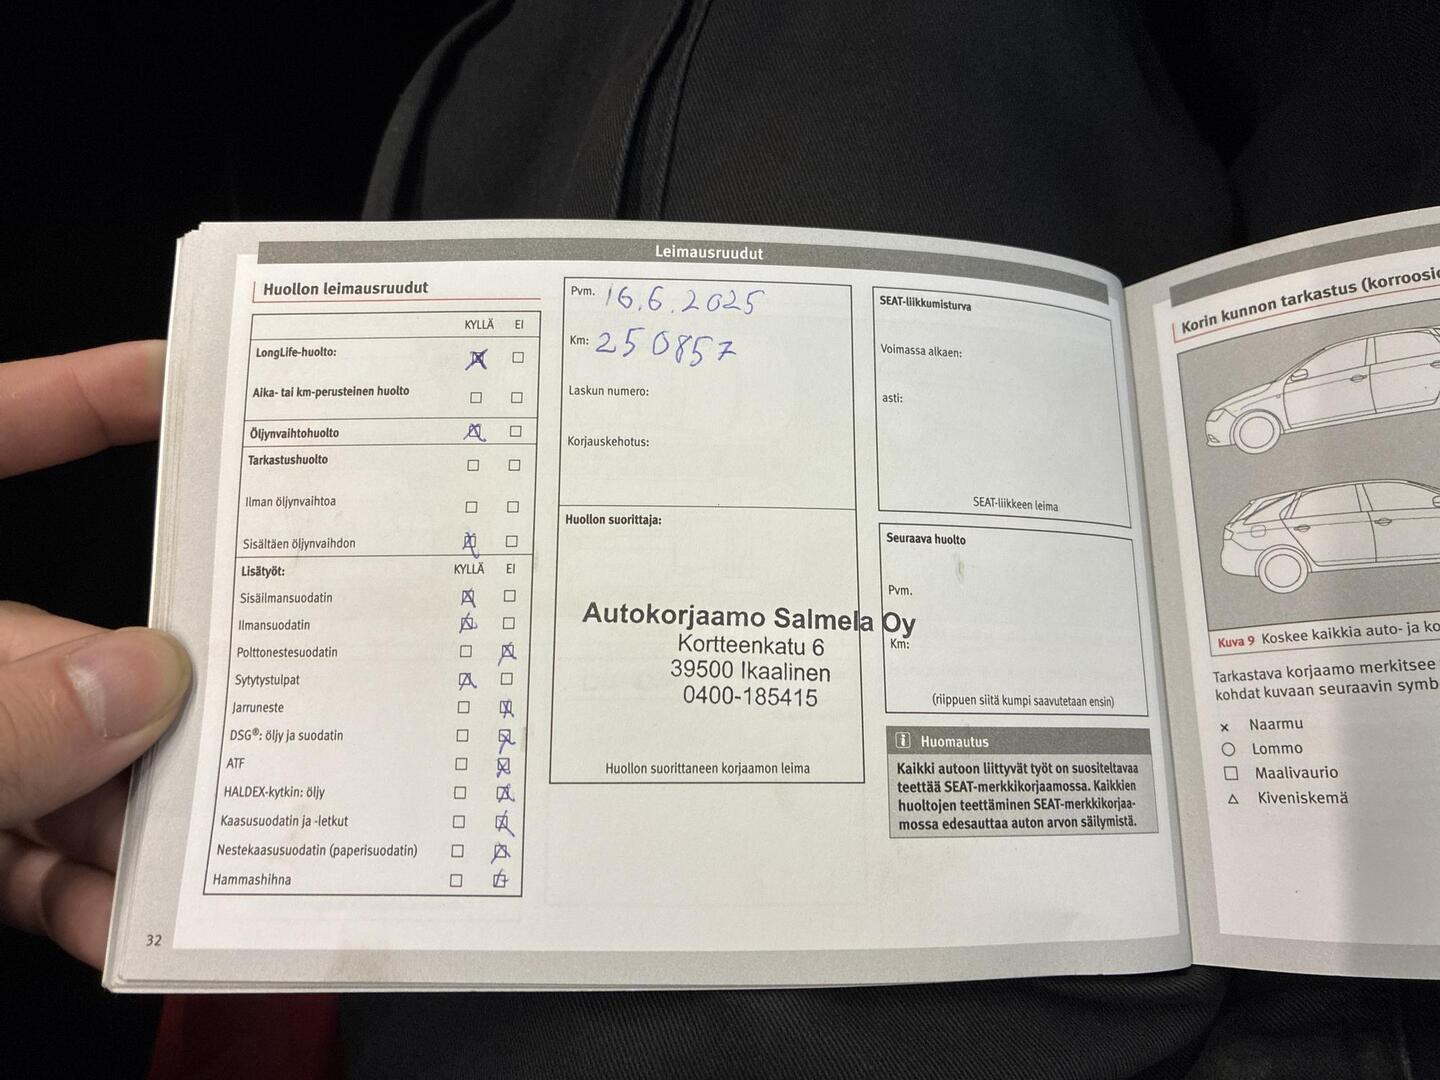 Leimausruudut
Huollon leimausruudut
KYLLÄ EI
LongLife-huolto:
Aika- tai km-perusteinen huolto
Öljynvaihtohuolto
Tarkastushuolto
Ilman öljynvaihtoa
Sisältäen öljynvaihdon
Lisätyöt: KYLLÄ EI
Sisäilmansuodatin
Ilmansuodatin
Polttonestesuodatin
Sytytystulpat
Jarruneste
DSG®: öljy ja suodatin
ATF
HALDEX-kytkin: öljy
Kaasusuodatin ja -letkut
Nestekaasusuodatin (paperisuodatin)
Hammashihna
32
Pvm. 16.6.2025
Km: 250857
Laskun numero:
Korjauskehotus:
Huollon suorittaja:
Autokorjaamo Salmela Oy
Kortteenkatu 6
39500 Ikaalinen
0400-185415
Huollon suorittaneen korjaamon leima
SEAT-liikkumisturva
Voimassa alkaen:
asti:
SEAT-liikkeen leima
Seuraava huolto
Pvm.
Km:
(riippuen siitä kumpi saavutetaan ensin)
i Huomautus
Kaikki autoon liittyvät työt on suositeltavaa
teettää SEAT-merkkikorjaamossa. Kaikkien
huoltojen teettäminen SEAT-merkkikorjaa-
mossa edesauttaa auton arvon säilymistä.
Korin kunnon tarkastus (korroosio
Kuva 9 Koskee kaikkia auto- ja ko
Tarkastava korjaamo merkitsee
kohdat kuvaan seuraavin symb
Naarmu
Lommo
Maalivaurio
Kiveniskemä